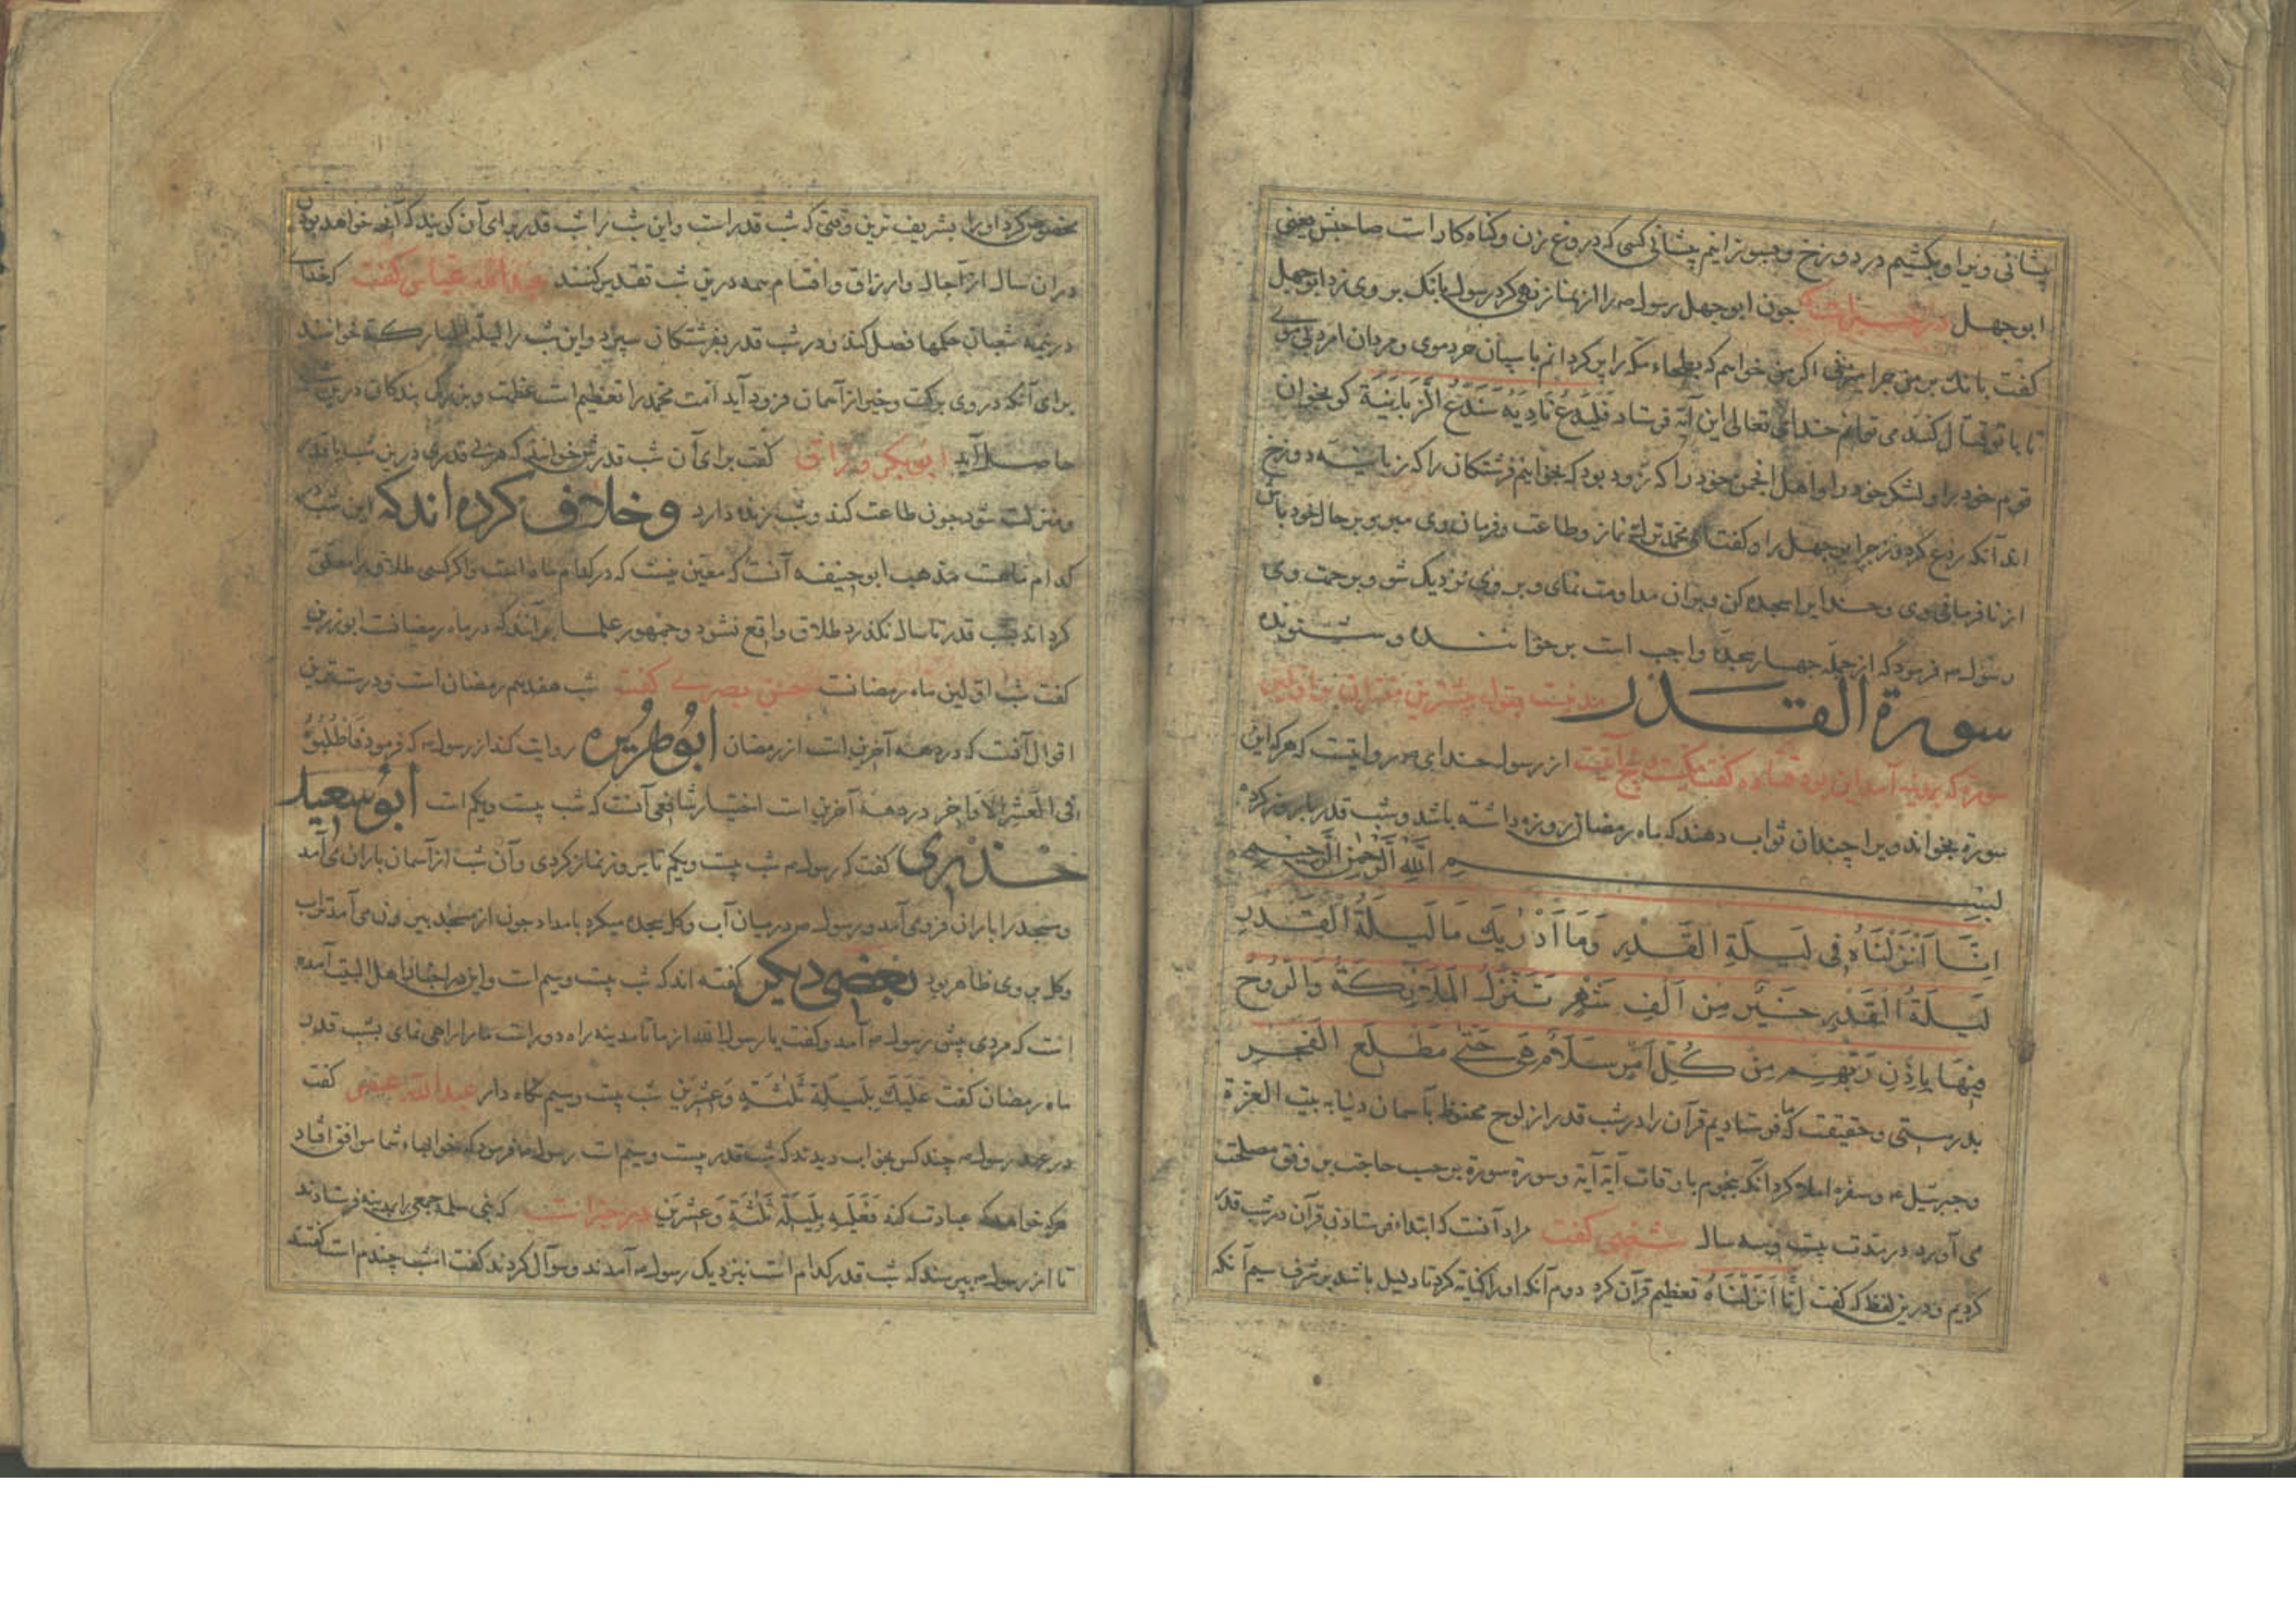 پیشانی ویرا و بکشیم در دوزخ و بسوزانیم پیشانی کسی که دروغ زن و گناه کار است صاحبش یعنی
ابو جهل در خبرست که جون ابو جهل رسول را از نماز نهی کرد رسول بانک بر وی زد ابو جهل
کفت بانک بر من جرا میزنی اکر من خواهم که بطحاء مکه را پر کردانم با سپان خردموی و مردان امرد
تا با تو قتال کنند می توانم خدای تعالی این آیة فرستاد فَلْیَدْعُ نَادِیَهُ سَنَدْعُ الزَّبَانِیَةَ کو بخوان
قوم خود را و لشکر خود را و اهل انجمن خود را که زود بود که بخوانیم فرشتکان را که زبانیه دوزخ
اند آنکه ردع کرد و زجر ابو جهل را و کفت ای محمد نماز و طاعت و فرمان وی مبر و بر حال خود باش
از نافرمانی وی و خدایرا سجده کن و بران مداومت نمای و بر وی نزدیک شو و برحمت وی
رسول فرمود که از جمله جهار سجده واجب است بر خواننده و شنونده
سورة القدر مدنیست بقول بیشترین مفسران و اولین
سوره که بمدینه آمد این بود کفت پنج آیتست از رسول خدای روایتست که هر که این
سورة بخواند ویرا چندان ثواب دهند که ماه رمضان روزه داشته باشد و شب قدر باروز کرده
بسم الله الرحمن الرحیم
اِنَّا اَنْزَلْنَاهُ فِی لَیْلَةِ الْقَدْرِ وَمَا اَدْرٰیكَ مَا لَیْلَةُ الْقَدْرِ
لَیْلَةُ الْقَدْرِ خَیْرٌ مِنْ اَلْفِ شَهْرٍ تَنَزَّلُ الْمَلٰئِکَةُ وَالرُّوحُ
فِیهَا بِاِذْنِ رَبِّهِمْ مِنْ کُلِّ اَمْرٍ سَلَامٌ هِیَ حَتّٰی مَطْلَعِ الْفَجْرِ
بدرستی و حقیقت که ما فرستادیم قرآن را در شب قدر از لوح محفوظ بآسمان دنیا به بیت العزة
و جبرئیل و سفره املا کرد آنکه بنجوم باوقات آیة آیة و سورة سورة بر حسب حاجت بر وفق مصلحت
می آورد در مدت بیست و سه سال شعبی کفت مراد آنست که ابتداء فرستادن قرآن در شب قدر
کردیم و درین لفظ که کفت اِنَّا اَنْزَلْنَاهُ تعظیم قرآن کرد دوم آنکه او را کنایة کرد تا دلیل باشد بر شرف سیم آنکه
مخصوص کرد او را بشریف ترین وقتی که شب قدر است و این شب را شب قدر برای آن کویند که آنچه خواهد بودن
دران سال از آجال و ارزاق و اقسام همه درین شب تقدیر کنند عبدالله عباس کفت که خدای
در نیمه شعبان حکمها فصل کند و در شب قدر بفرشتکان سپرد و این شب را لیلة المبارکة خوانند
برای آنکه در وی برکت و خیر از آسمان فرود آید امت محمد را تعظیم است عظمت و بزرکی بندکان درین شب
حاصل آید ابوبکر وراق کفت برای آن شب قدرش خوانند که هر بی قدری درین شب با قدر
و منزلت شود جون طاعت کند و شب زنده دارد و خلاف کرده اند که این شب
کدام شبست مذهب ابو حنیفه آنست که معین نیست که در کدام ماه است و اکر کسی طلاق را معلق
کرداند بشب قدر تا سال نکذرد طلاق واقع نشود و جمهور علما برآنند که در ماه رمضانست ابو رزین
کفت شب اولین ماه رمضانست حسن بصری کفت شب هفدهم رمضان است و درست ترین
اقوال آنست که در دهه آخرین است از رمضان ابو هریره روایت کند از رسول که فرمود فَاطْلُبُوهُ
فِی الْعَشْرِ الْاَوَاخِرِ در دهه آخرین است اختیار شافعی آنست که شب بیست و یکم است ابو سعید
خدری کفت که رسول شب بیست و یکم تا بروز نماز کردی و آن شب از آسمان باران می آمد
و مسجد را باران فرو می آمد و رسول در میان آب و کل سجده میکرد بامداد جون از مسجد بیرون می آمد تراب
و کل بر وی ظاهر بود بعضی دیکر کفته اند که شب بیست و سیم است و این در اخبار اهل البیت آمده
است که مردی پیش رسول آمد و کفت یا رسول الله از ما تا مدینه راه دور است ما را راهی نمای بشب قدر
ماه رمضان کفت عَلَیْكَ بِلَیْلَةِ ثَلٰثَةٍ وَعِشْرِینَ شب بیست و سیم نکاه دار عبدالله عمر کفت
در عهد رسول چند کس بخواب دیدند که شب قدر بیست و سیم است رسول فرمود که خوابهاء شما موافق افتاد
هر که خواهد که عبادت کند فَعَلَیْهِ بِلَیْلَةِ ثَلٰثَةٍ وَعِشْرِینَ در خبرست که بنی سلمه جمعی را بمدینه فرستادند
تا از رسول بپرسند که شب قدر کدام است نزدیک رسول آمدند و سوال کردند کفت امشب چندم است کفتند